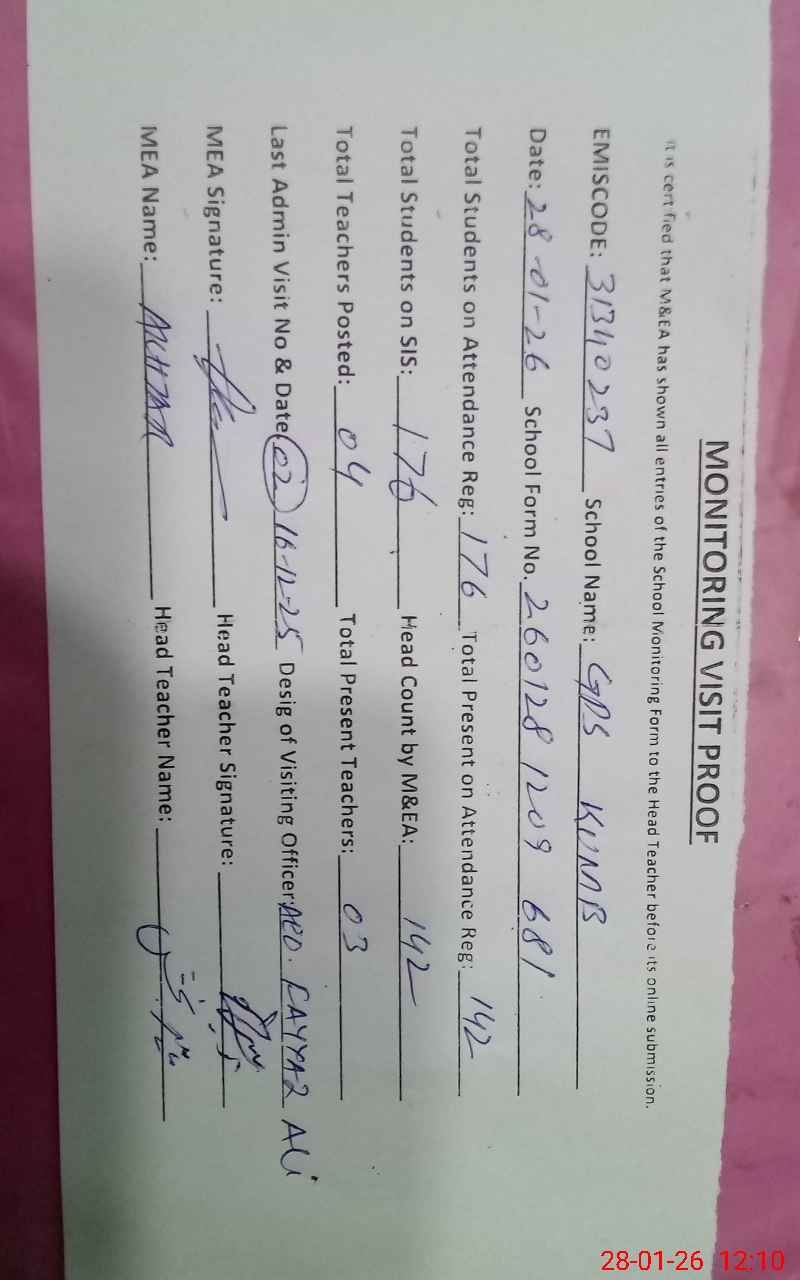 MONITORING VISIT PROOF
It is certified that M&EA has shown all entries of the School Monitoring Form to the Head Teacher before its online submission.
EMISCODE: 31340237 School Name: GPS KUMB
Date: 28-01-26 School Form No. 260128 1209 681
Total Students on Attendance Reg: 176 Total Present on Attendance Reg: 142
Total Students on SIS: 176 Head Count by M&EA: 142
Total Teachers Posted: 04 Total Present Teachers: 03
Last Admin Visit No & Date 02 16-12-25 Desig of Visiting Officer: Ali
MEA Signature: Head Teacher Signature:
MEA Name: Head Teacher Name:
28-01-26 12:10